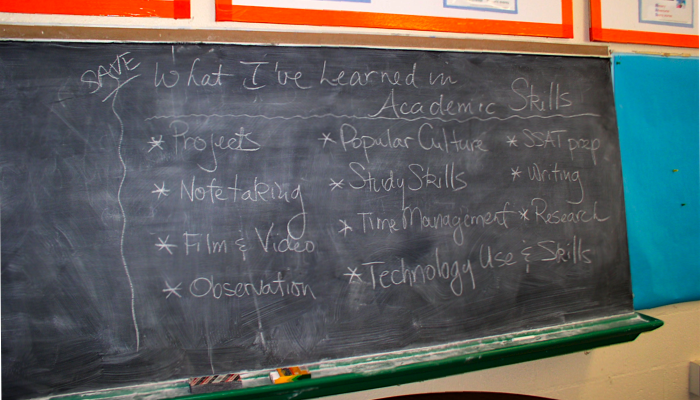 SAVE
What I've Learned in
Academic Skills
* Projects
* Popular Culture
* SSAT prep
* Notetaking
* Study Skills
* Writing
* Film & Video
* Time Management
* Research
* Observation
* Technology Use & Skills